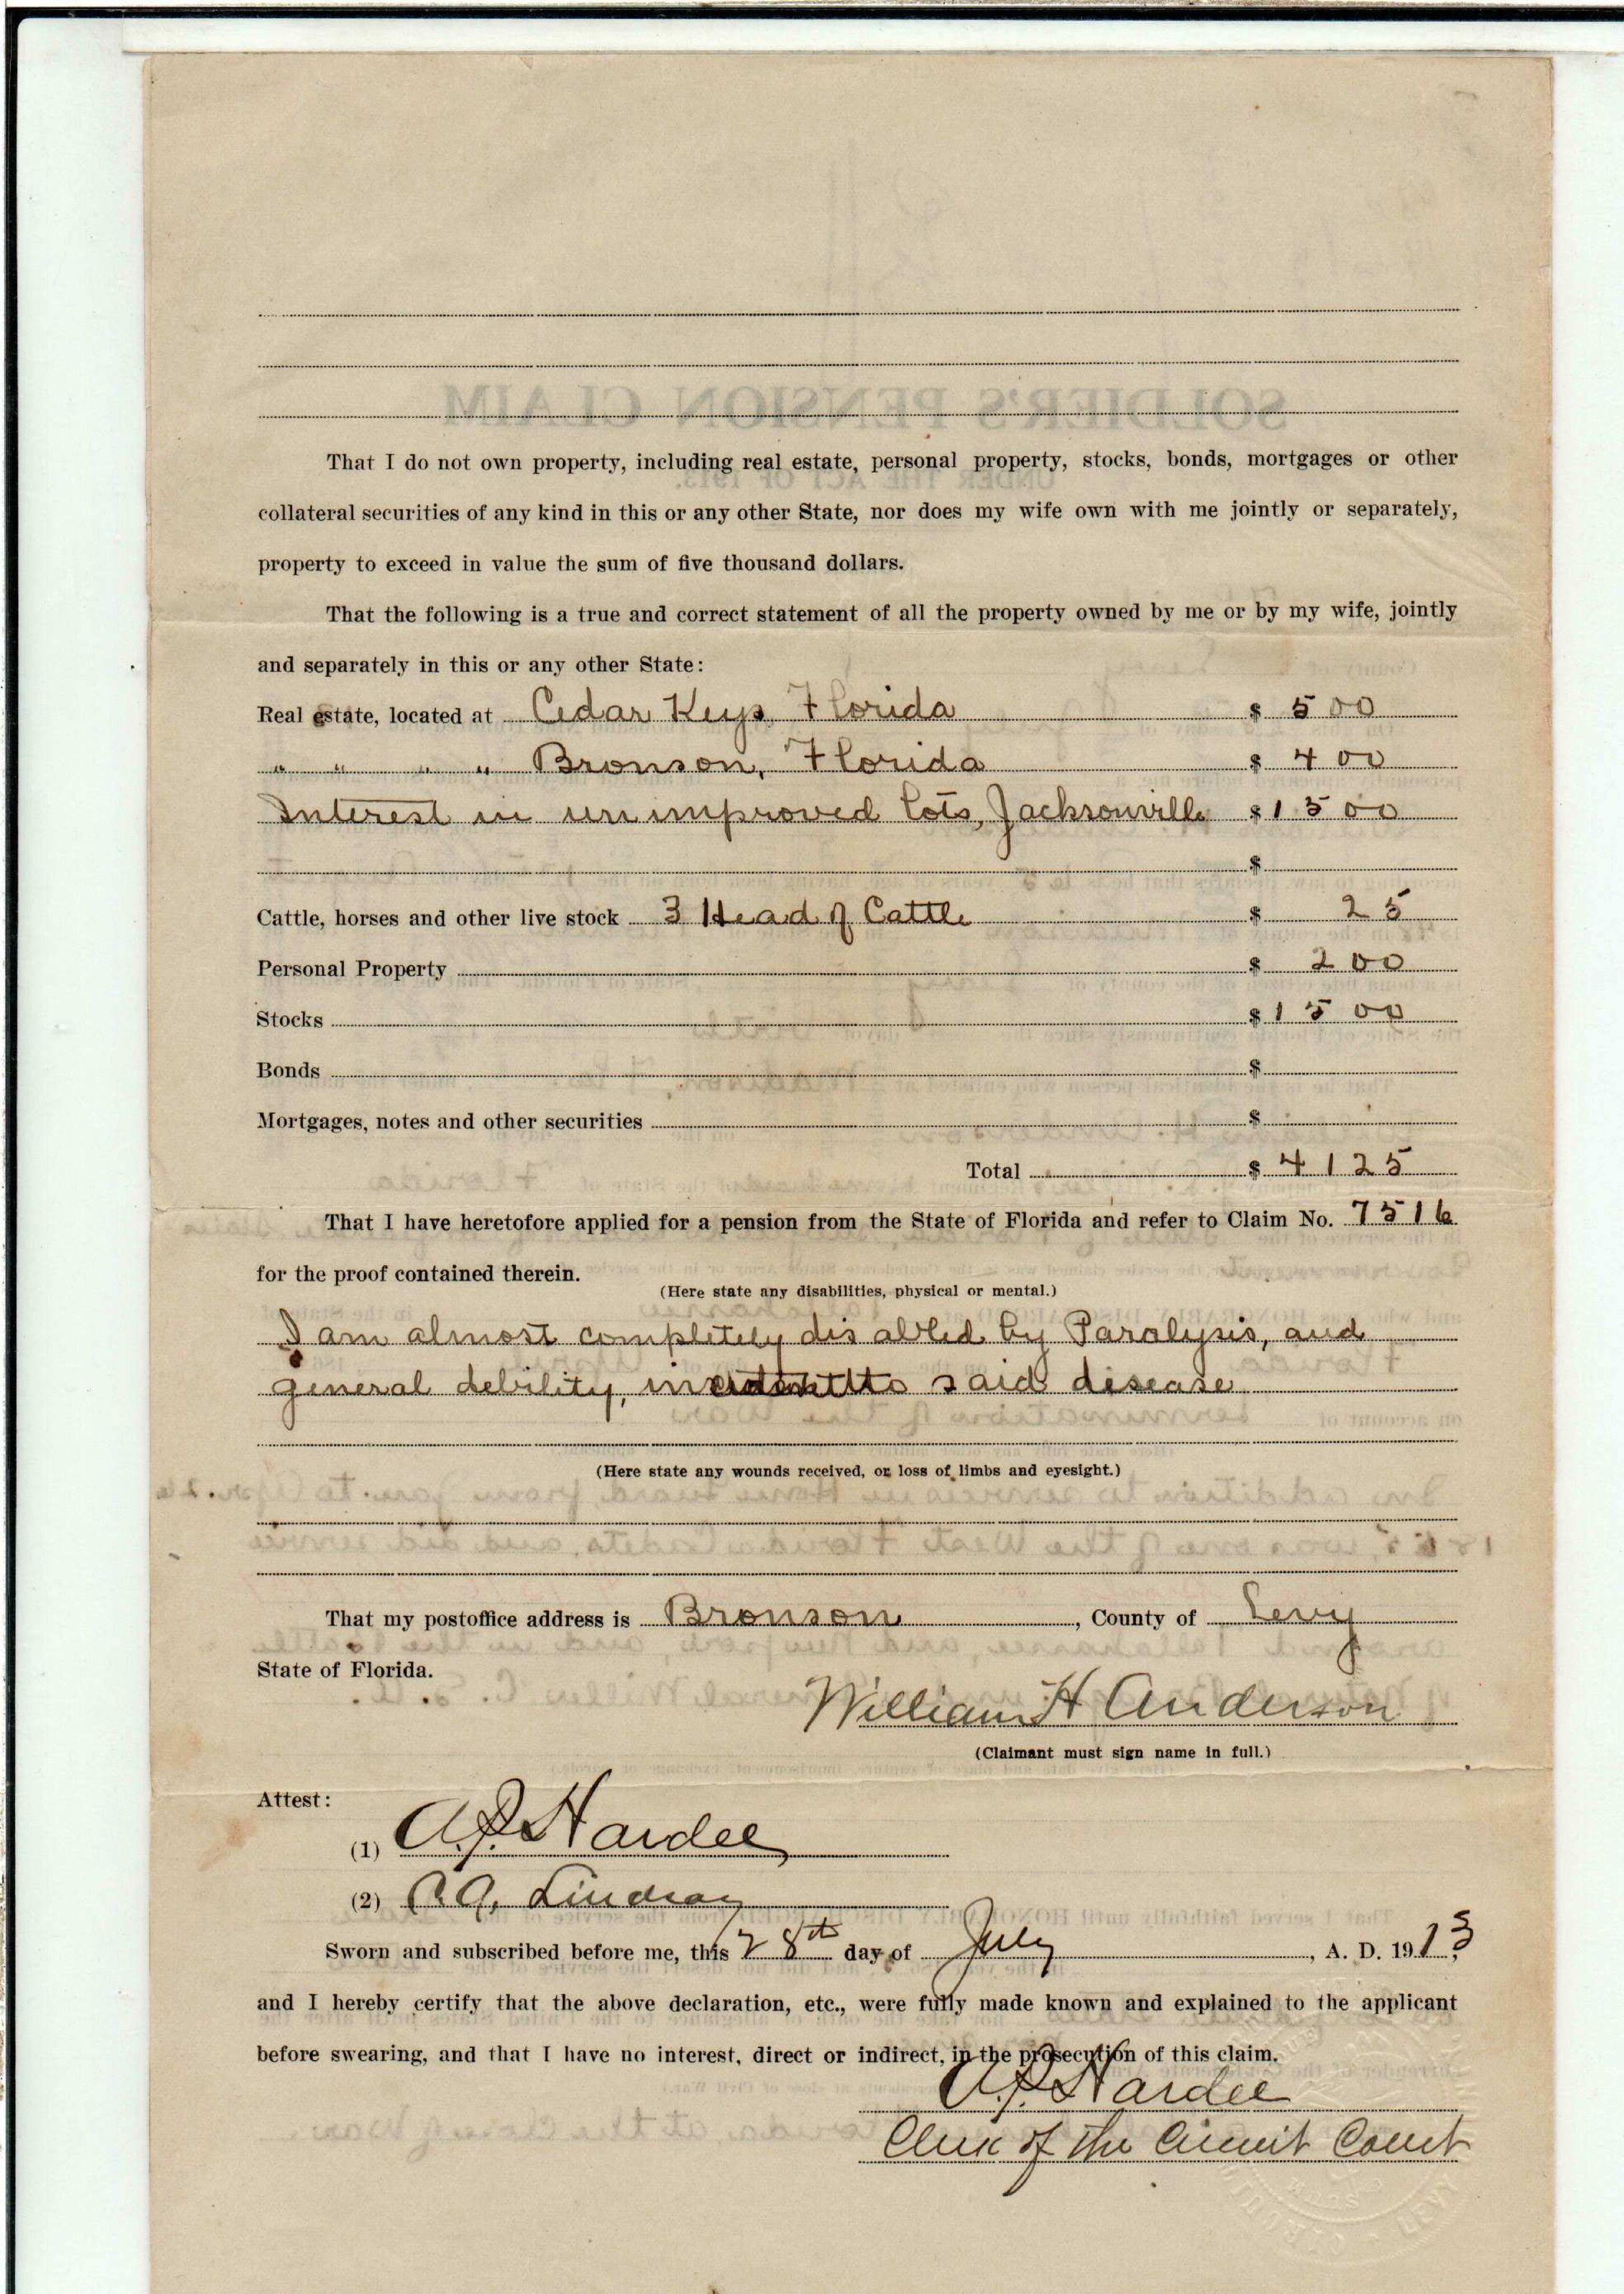 That I do not own property, including real estate, personal property, stocks, bonds, mortgages or other
collateral securities of any kind in this or any other State, nor does my wife own with me jointly or separately,
property to exceed in value the sum of five thousand dollars.
That the following is a true and correct statement of all the property owned by me or by my wife, jointly
and separately in this or any other State:
Real estate, located at Cedar Keys, Florida $ 500
" " " " Bronson, Florida $ 400
Interest in unimproved lots, Jacksonville $ 1500
$
Cattle, horses and other live stock 3 Head of Cattle $ 25
Personal Property $ 200
Stocks $ 1500
Bonds $
Mortgages, notes and other securities $
Total $ 4125
That I have heretofore applied for a pension from the State of Florida and refer to Claim No. 7516
for the proof contained therein.
(Here state any disabilities, physical or mental.)
I am almost completely disabled by Paralysis, and
general debility, to said disease
(Here state any wounds received, or loss of limbs and eyesight.)
That my postoffice address is Bronson, County of Levy
State of Florida.
William H Anderson
(Claimant must sign name in full.)
Attest:
(1) Hardee
(2) Lindsay
Sworn and subscribed before me, this 28th day of July, A. D. 1913,
and I hereby certify that the above declaration, etc., were fully made known and explained to the applicant
before swearing, and that I have no interest, direct or indirect, in the prosecution of this claim.
Hardee
Clerk of the Circuit Court